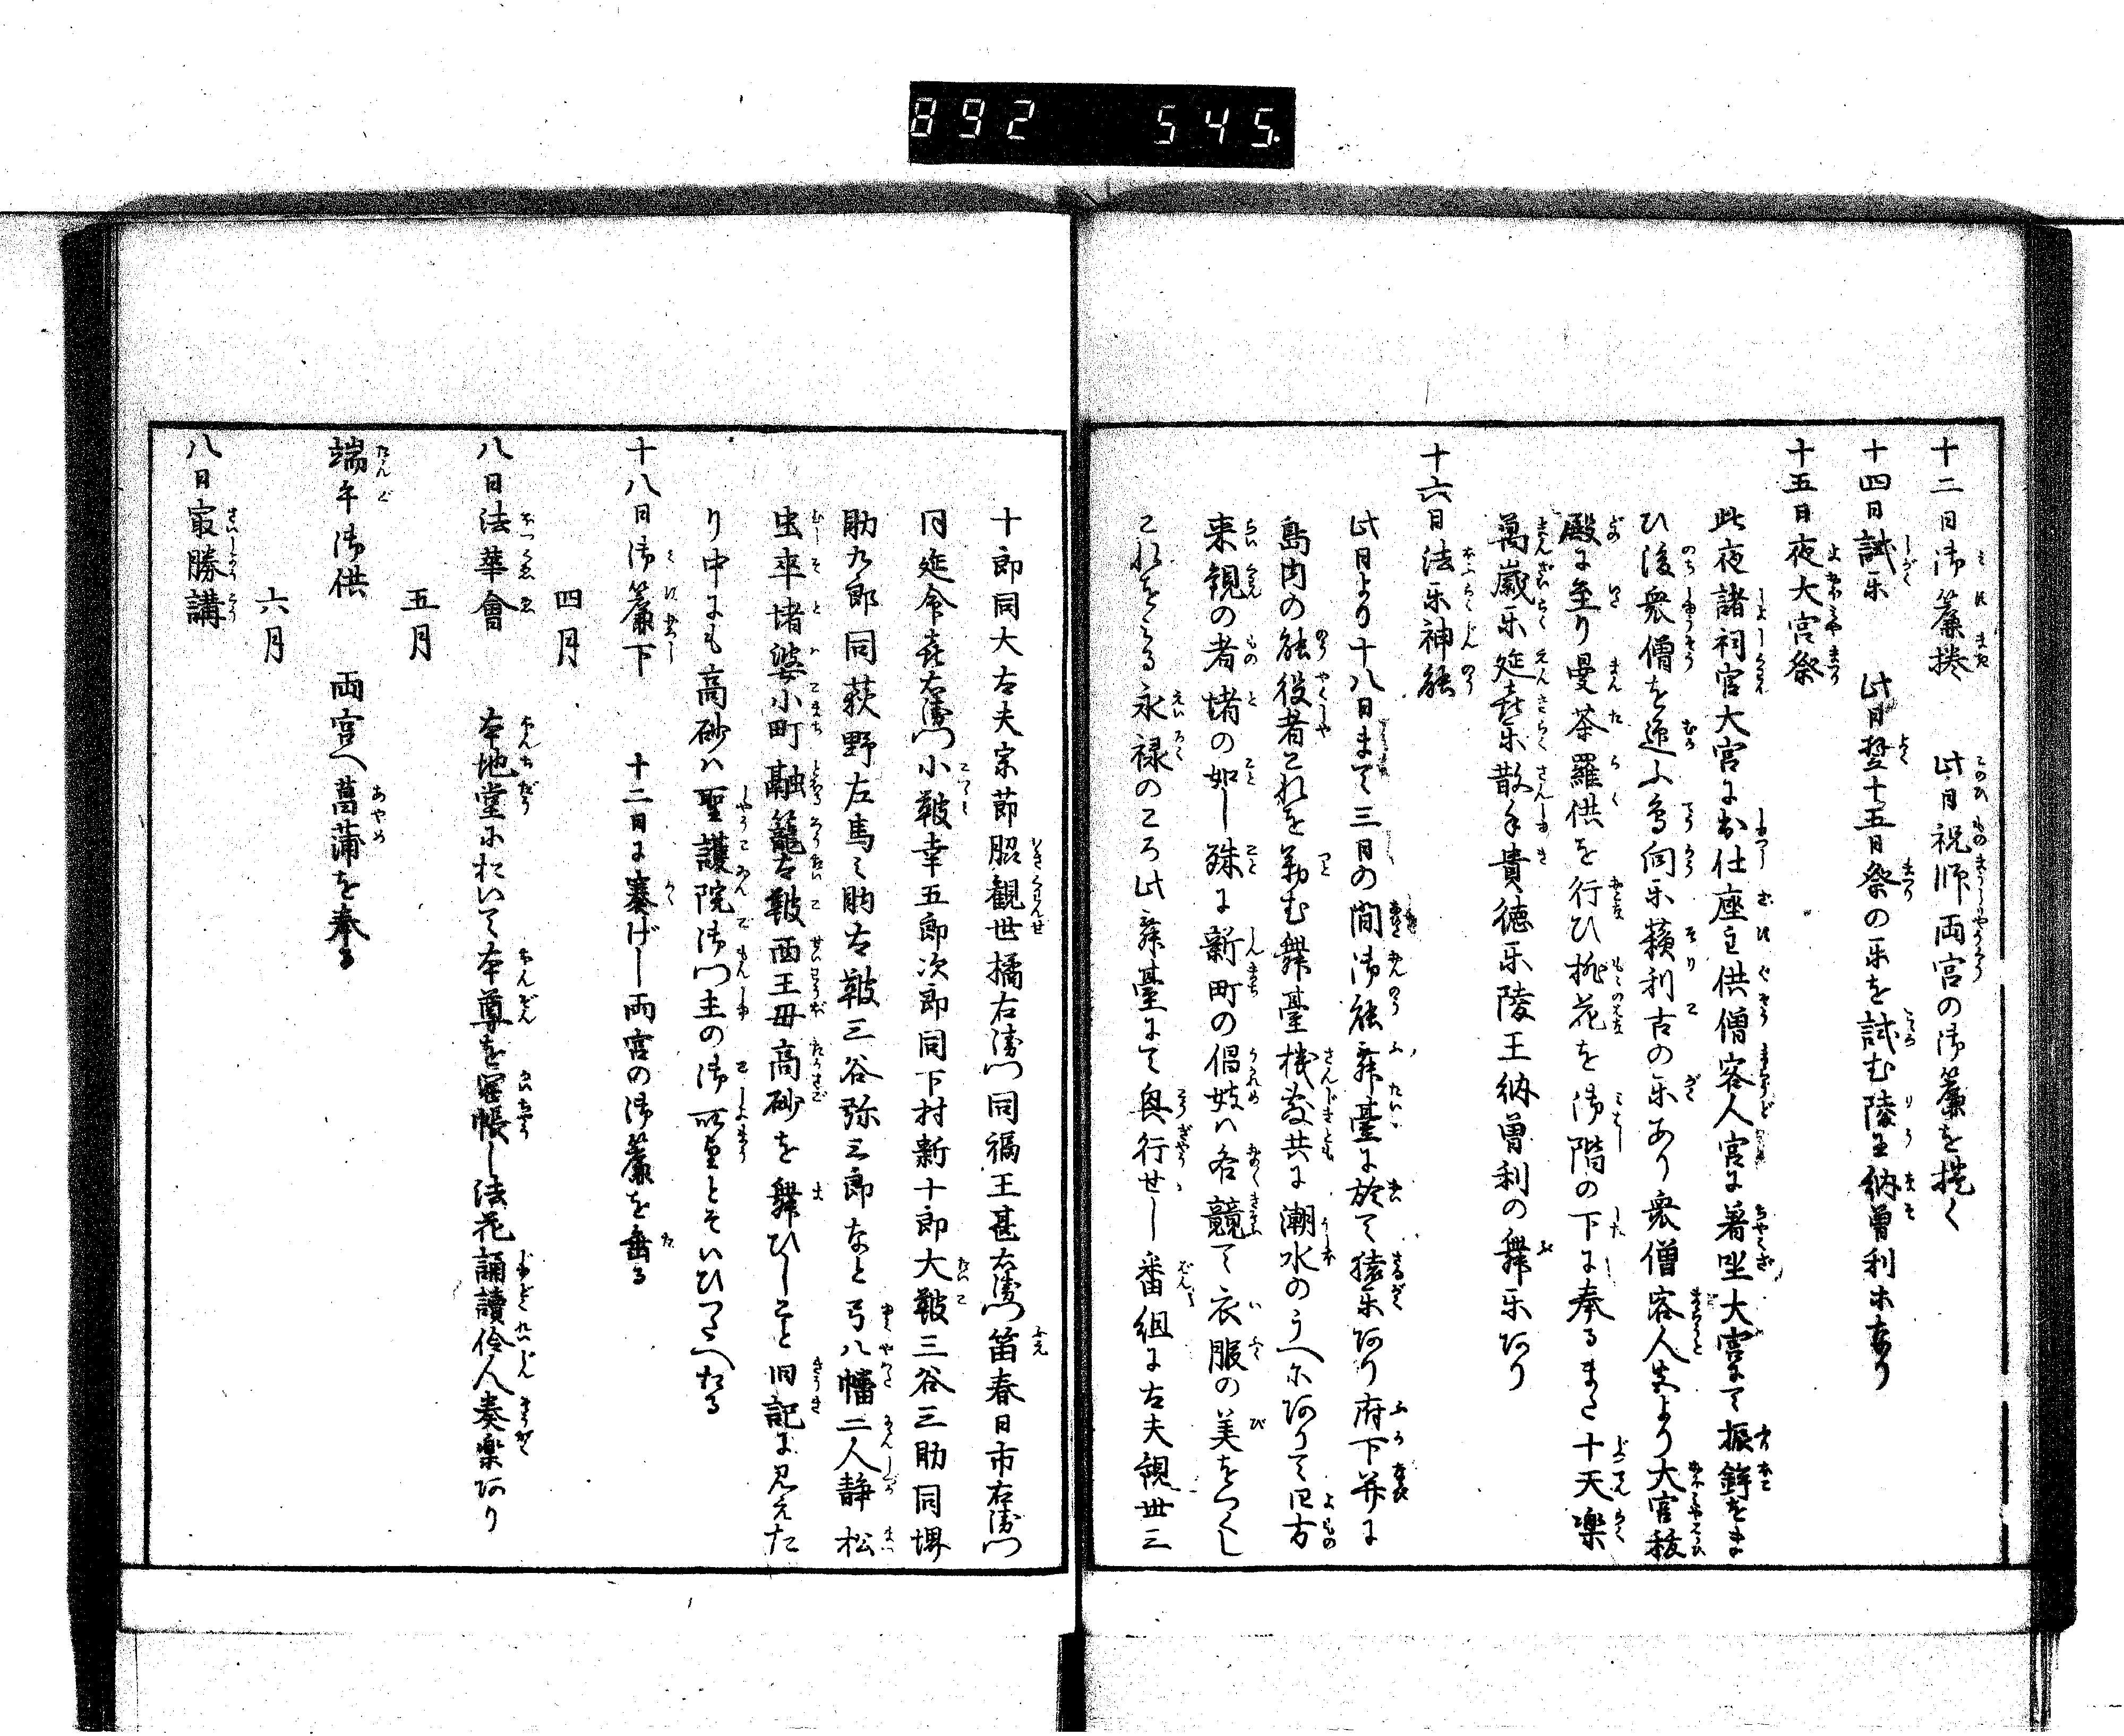 892 545.
十二日御簾捲 此日祝師両宮の御簾を捲く
十四日試乐 此日翌十五日祭の乐を試む陵王納曽利ホあり
十五日夜大宮祭
此夜諸祠官大宮に出仕座主供僧客人宮に著坐大宮にて振鉾をま
ひ後衆僧を迎ふ鳥向乐蘓利古の乐あり衆僧客人宮より大宮秡
殿に至り曼荼羅供を行ひ桃花を御階の下に奉るまた十天楽
萬歳乐延喜乐散手貴徳乐陵王納曽利の舞乐あり
十六日法乐神能
此日より十八日まて三日の間御能舞臺に於て猿乐あり府下并に
島内の能役者これを勤む舞臺機敷共に潮水のうへにありて四方
来観の者堵の如し殊に新町の倡妓ハ各競て衣服の美をつくし
これをみる永禄のころ此舞臺にて興行せし番組に古夫観世三
十郎同大古夫宗節脇観世橘右衛門同福王甚右衛門笛春日市右衛門
同延命㐂右衛門小鞁幸五郎次郎同下村新十郎大鞁三谷三助同堺
助九郎同荻野左馬之助古鞁三谷弥三郎なと弓八幡二人静松
虫卒堵婆小町融籠古鞁西王母高砂を舞ひしこと旧記に見えた
り中にも高砂ハ聖護院御門主の御所望とそいひつたへたる
十八日御簾下 十二日に褰げし両宮の御簾を垂る
四月
八日法華會 本地堂において本尊を啓帳し法花誦讀伶人奏楽あり
五月
端午御供 両宮へ菖蒲を奉る
六月
八日㝡勝講